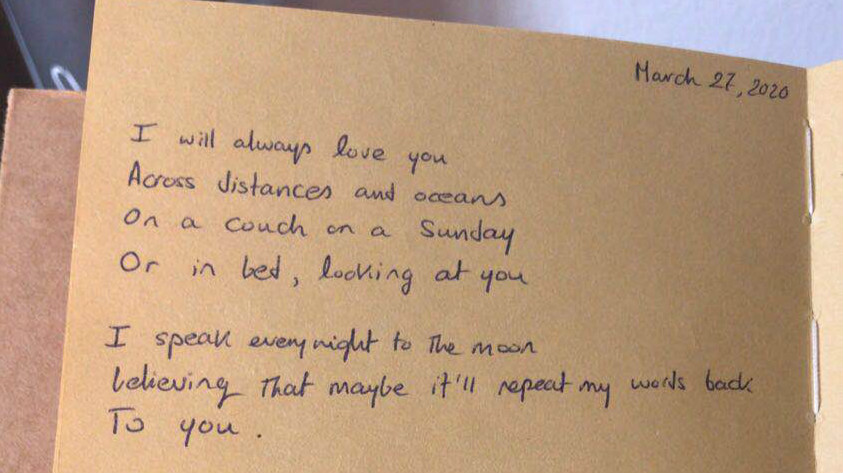 March 27, 2020
I will always love you
Across distances and oceans
On a couch on a Sunday
Or in bed, looking at you
I speak every night to The moon
believing That maybe it'll repeat my words back
To you.